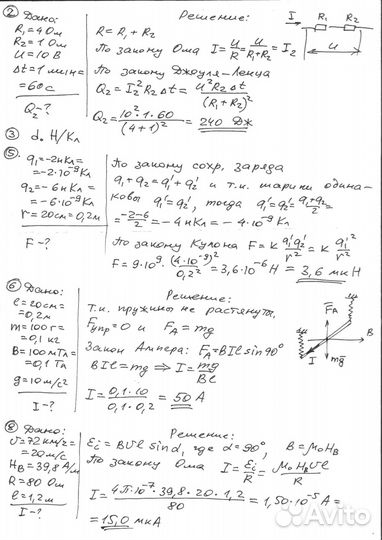 ② Дано:
R₁=4 Ом
R₂=1 Ом
U=10 В
Δt=1 мин=
=60с
Q₂-?
Решение:
R=R₁+R₂
По закону Ома I=U/R=U/(R₁+R₂)=I₂
По закону Джоуля-Ленца
Q₂=I₂²R₂Δt=U²R₂Δt/(R₁+R₂)²
Q₂=10²·1·60/(4+1)²=240 Дж
I R₁ R₂
U
③ d. Н/Кл
⑤ Дано:
q₁=-2нКл=
=-2·10⁻⁹Кл
q₂=-6нКл=
=-6·10⁻⁹Кл
r=20см=0,2м
F-?
По закону сохр. заряда
q₁+q₂=q₁'+q₂' и т.к. шарики одина-
ковы q₁'=q₂', тогда q₁'=q₂'=(q₁+q₂)/2=
=(-2-6)/2=-4нКл=-4·10⁻⁹Кл
По закону Кулона F=k q₁'q₂'/r²=k q₁'²/r²
F=9·10⁹·(4·10⁻⁹)²/0,2²=3,6·10⁻⁶Н=3,6 мкН
⑥ Дано:
l=20см=
=0,2м
m=100г=
=0,1 кг
B=100мТл=
=0,1 Тл
g=10м/с²
I-?
Решение:
Т.к. пружины не растянуты,
Fупр=0 и F_A=mg
Закон Ампера: F_A=BIl sin90°
BIl=mg ⇒ I=mg/Bl
I=0,1·10/0,1·0,2=50 А
F_A
B
I mg
⑧ Дано:
υ=72км/ч=
=20м/с
H_B=39,8 А/м
R=80 Ом
l=1,2м
I-?
Решение:
ℰi=Bυl sinα, где α=90°, B=μ₀H_B
По закону Ома I=ℰi/R=μ₀H_Bυl/R
I=4π·10⁻⁷·39,8·20·1,2/80=1,50·10⁻⁵А=
=15,0 мкА
Avito